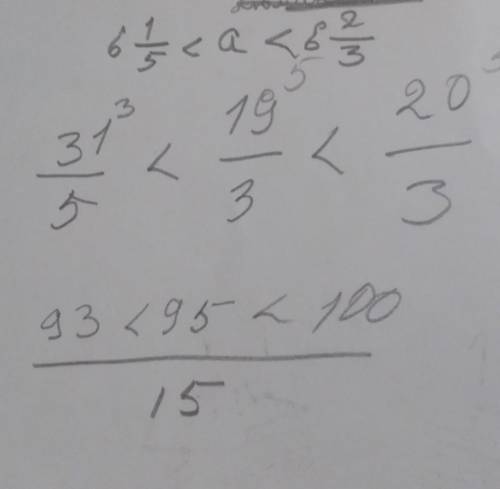 6 1/5 < a < 6 2/3
31³/5 < 19⁵/3 < 20⁵/3
93 < 95 < 100
15